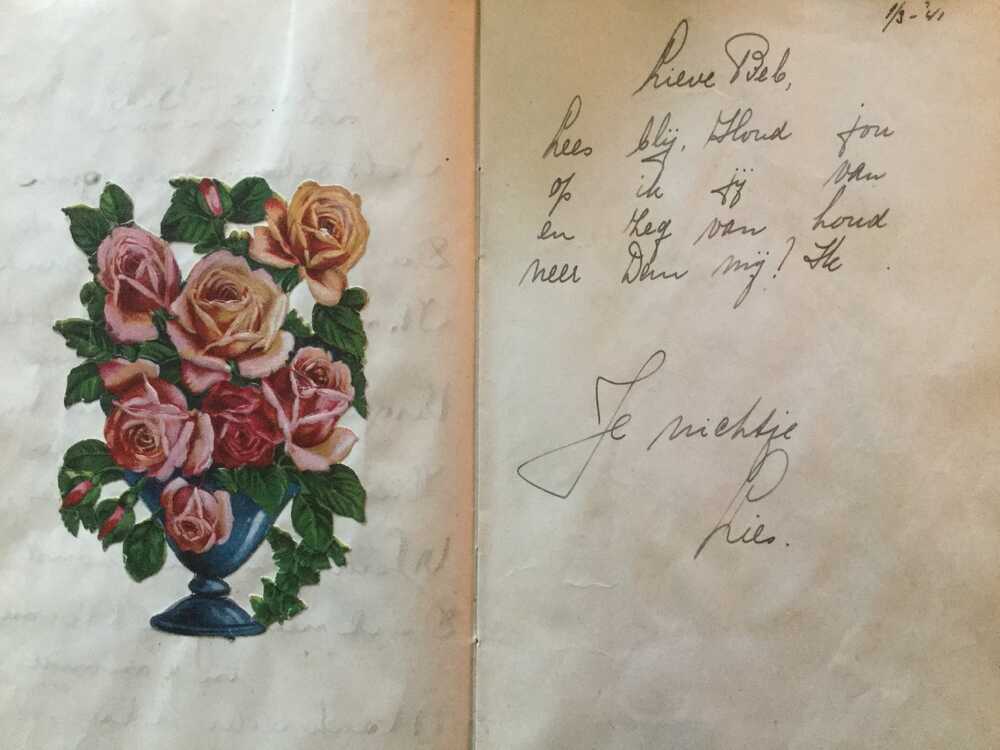 1/3-'41
Lieve Beb,
Lees blij. Houd jou
op ik jij van
en zeg van houd
neer Dan mij! Ik .
Je nichtje
Lies.